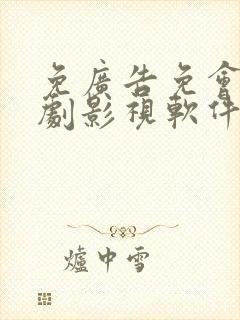 免廣告免會
劇影視軟件
爐中雪